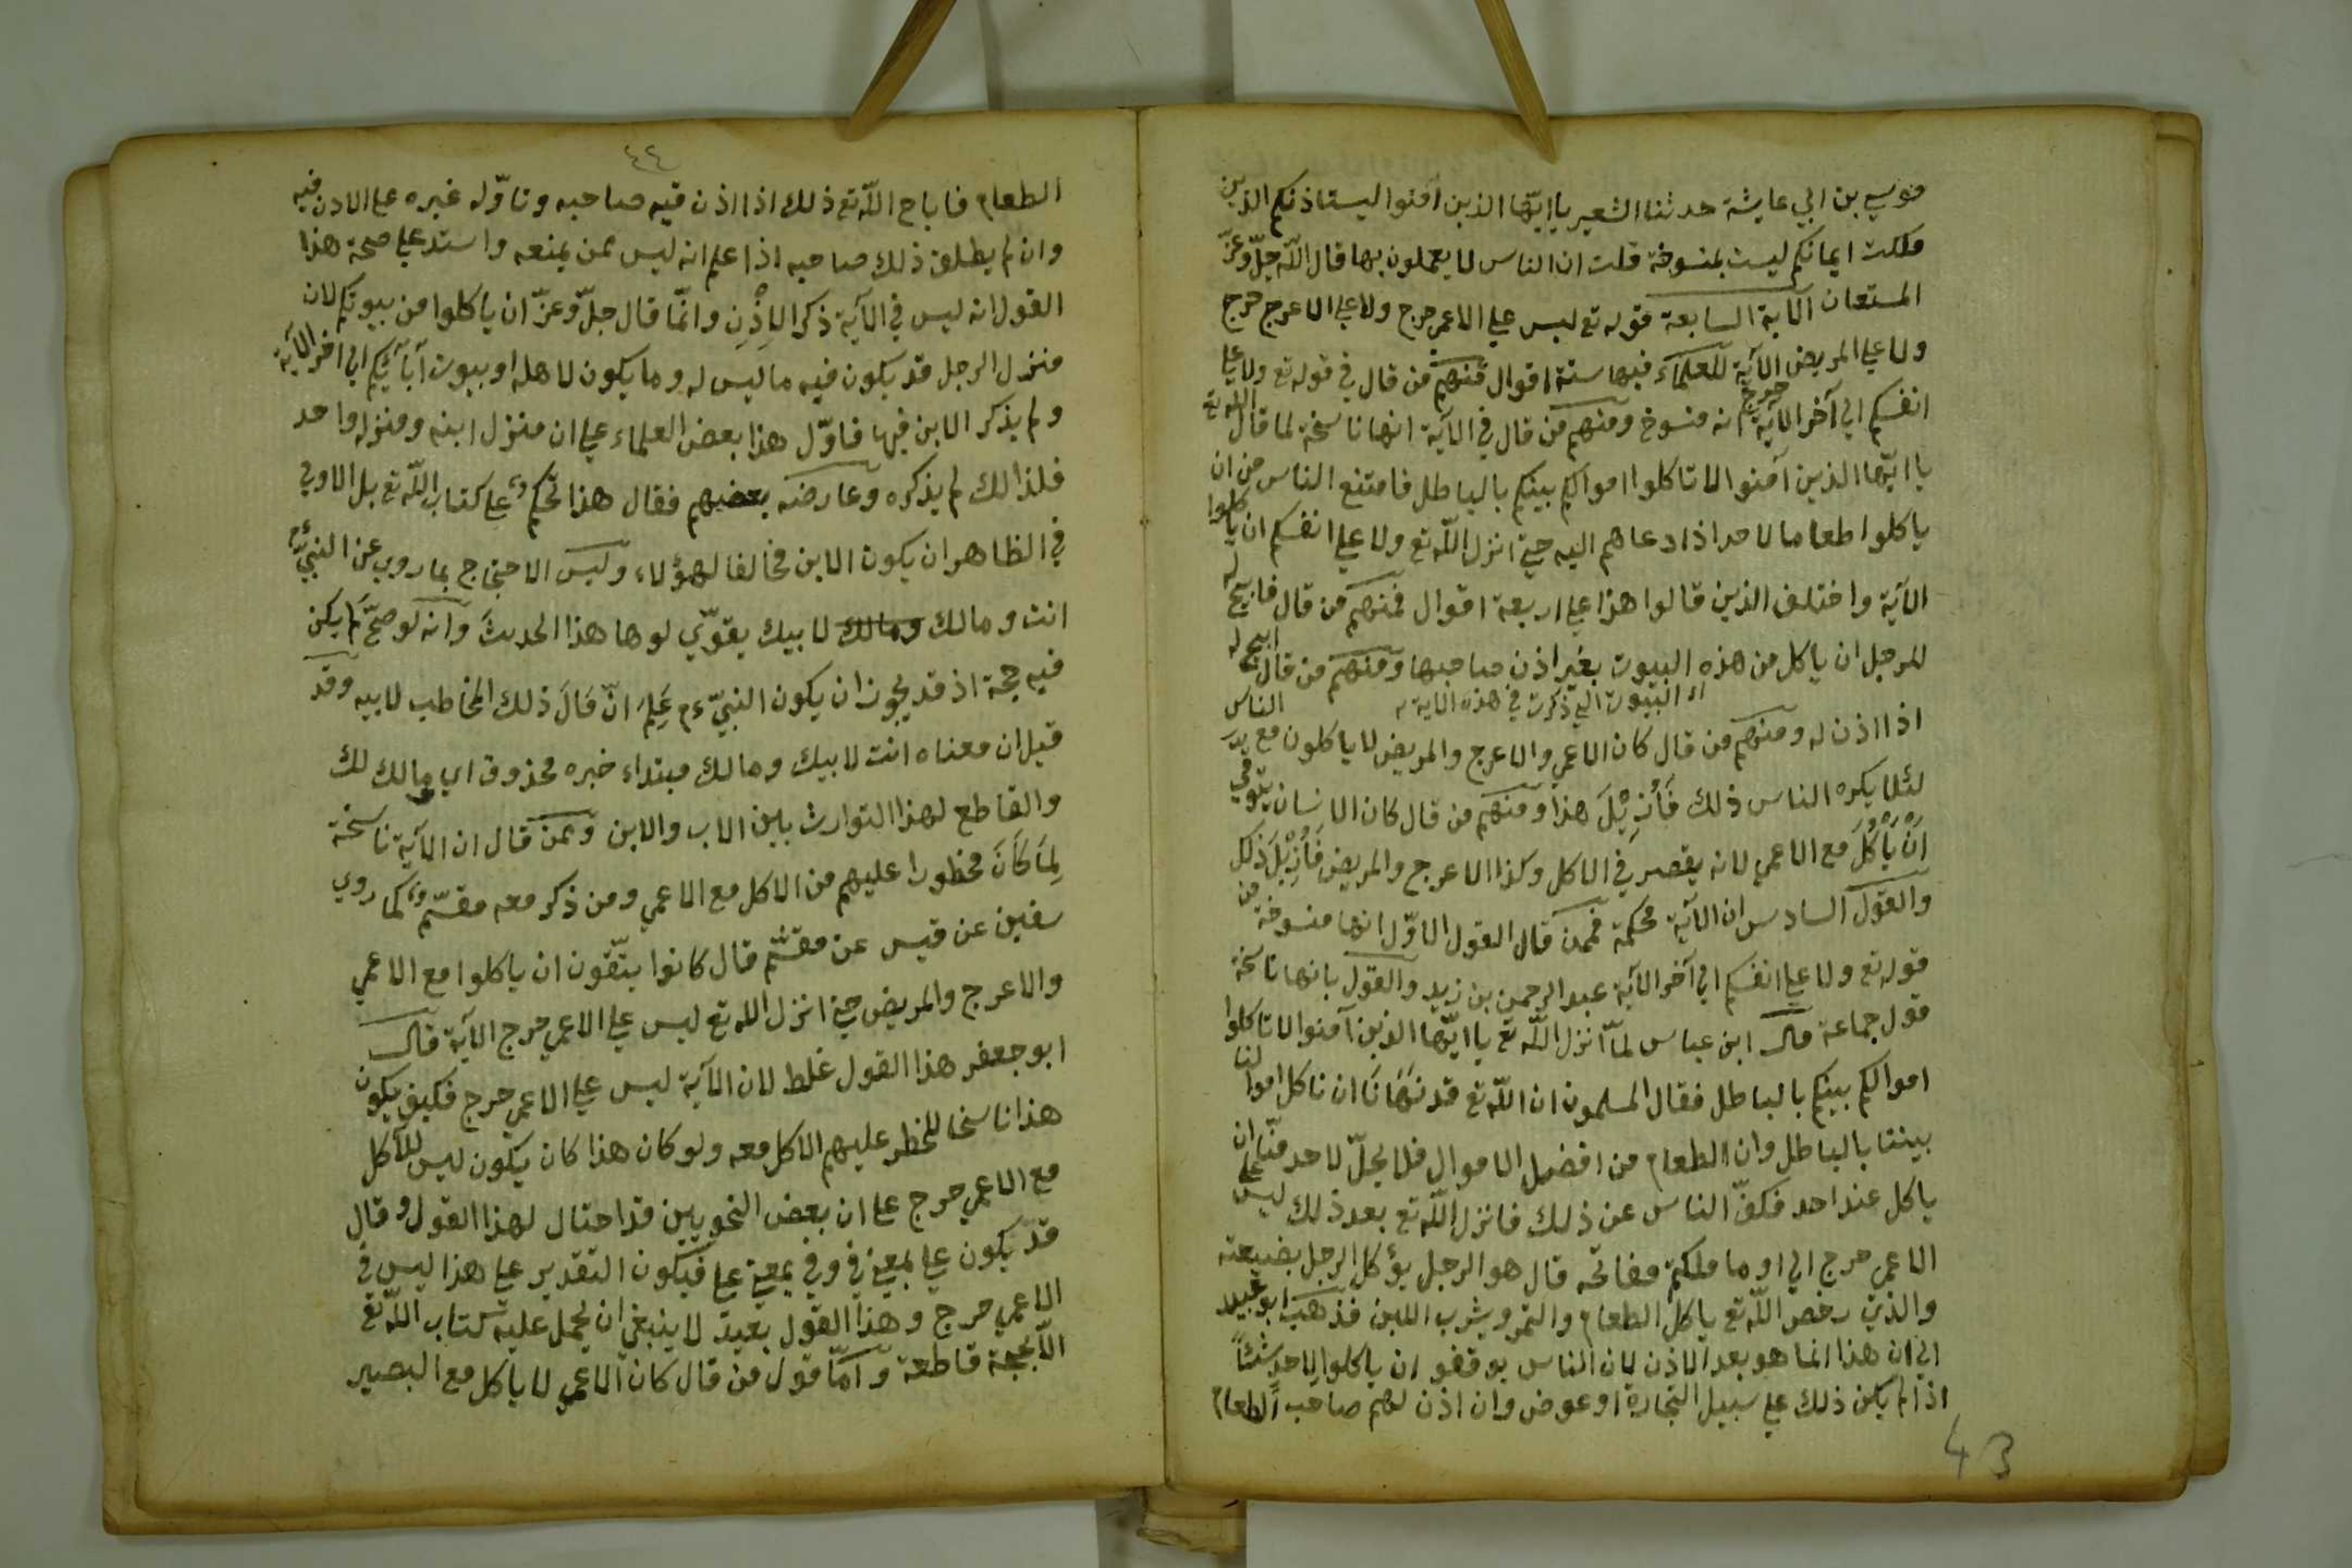 موسي بن ابي عايشة حدثنا الشعبي يا ايّها الذين آمنوا ليستاذنكم الذين
ملكت ايمانكم ليست بمنسوخة قلت ان الناس لا يعملون بها قال اللّه جلّ وعزّ
المستعان الآية السابعة قوله تع ليس علي الاعمي حرج ولا علي الاعرج حرج
ولا علي المريض حرج الآية للعلماء فيها ستة اقوال فمنهم من قال في قوله تع ولا علي
انفسكم الي آخر الآية انه منسوخ ومنهم من قال في الآية انها ناسخة لما قال اللّه تع
يا ايّها الذين آمنوا لا تاكلوا اموالكم بينكم بالباطل فامتنع الناس من ان
ياكلوا طعاما لاحد اذا دعاهم اليه حتي انزل اللّه تع ولا علي انفسكم ان ياكلوا
الآية واختلف الذين قالوا هذا علي اربعة اقوال فمنهم من قال فابيح له
للرجل ان ياكل من هذه البيوت بغير اذن صاحبها ومنهم من قال ابيح له
اي البيوت التي ذكرت في هذه الاية
اذا اذن له ومنهم من قال كان الاعمي والاعرج والمريض لا ياكلون مع الناس
لئلا يكره الناس ذلك فَأُزِيْلَ هذا ومنهم من قال كان الانسان يتوقي
اَنْ يَأْكُلَ مع الاعمي لانه يقصر في الاكل وكذا الاعرج والمريض فَأُزِيْلَ ذلك
والقول السادس ان الآية محكمة فممن قال القول الاوّل انها منسوخة من
قوله تع ولا علي انفسكم الي آخر الآية عبد الرحمن بن زيد والقول بانها ناسخة
قول جماعة قال ابن عباس لمّا انزل اللّه تع يا ايّها الذين آمنوا لا تاكلوا
اموالكم بينكم بالباطل فقال المسلمون ان اللّه تع قد نَهَانَا ان ناكل اموالنا
بيننا بالباطل وان الطعام من افضل الاموال فلا يحلّ لاحد منّا ان
ياكل عند احد فكفّ الناس عن ذلك فانزل اللّه تع بعد ذلك ليس علي
الاعمي حرج الي او ما ملكتم مفاتحه قال هو الرجل يؤكل الرجل بضيعته
والذي رخص اللّه تع ياكل الطعام والتمر ويشرب اللبن فذهب ابو عبيد
الي ان هذا انما هو بعد الاذن لان الناس بوقفو ان ياكلوا لاحد شئاً
اذا لم يكن ذلك علي سبيل التجارة او عوض وان اذن لهم صاحب الطعام
43
٤٤
الطعام فاباح اللّه تع ذلك اذا اذن فيه صاحبه وتاوّله غيره علي الاذن فيه
وان لم يطلق ذلك صاحبه اذا علم انه ليس ممن يمنعه واستدعلي صحة هذا
القول انه ليس في الآية ذكر الاِذْنِ وانّما قال جلّ وعزّ ان ياكلوا من بيوتكم لان
منزل الرجل قد يكون فيه ما ليس له وما يكون لاهله او بيوت آبآئكم الي آخر الآية
ولم يذكر الابن فيها فاوّل هذا بعض العلماء علي ان منزل ابنه ومنزله واحد
فلذالك لم يذكره وعارضه بعضهم فقال هذا تحكم علي كتاب اللّه تع بل الاولي
في الظاهر ان يكون الابن مخالفا لهؤلاء وليس الاحتجاج بما روي عن النبيّ
انت ومالك ومالك لابيك يقوّي لوها هذا الحديث وانه لو صحّ لم يكن
فيه حجة اذ قد يجوز ان يكون النبيّ عم عَلِمَ انّ قَالَ ذلك المخاطب لابيه وقد
قيل ان معناه انت لابيك ومالك مبتداء خبره محذوف اي ومالك لك
والقاطع لهذا التوارث بين الاب والابن وممن قال ان الآية ناسخة
لِمَا كَانَ محظورا عليهم من الاكل مع الاعمي ومن ذكر معه مقسّم كما روي
سفين عن قيس عن مقسّم قال كانوا يتّقون ان ياكلوا مع الاعمي
والاعرج والمريض حتي انزل اللّه تع ليس علي الاعمي حرج الآية قال
ابو جعفر هذا القول غلط لان الآية ليس علي الاعمي حرج فكيف يكون
هذا ناسخا للحظر عليهم الاكل معه ولو كان هذا كان يكون ليس للآكل
مع الاعمي حرج علي ان بعض النحويين قد احتال لهذا القول وقال
قد يكون علي بمعني في وفي بمعني علي فيكون التقدير علي هذا ليس في
الاعمي حرج وهذا القول بعيد لا ينبغي ان يحمل عليه كتاب اللّه تع
الّا بحجة قاطعة وامّا قول من قال كان الاعمي لا ياكل مع البصير